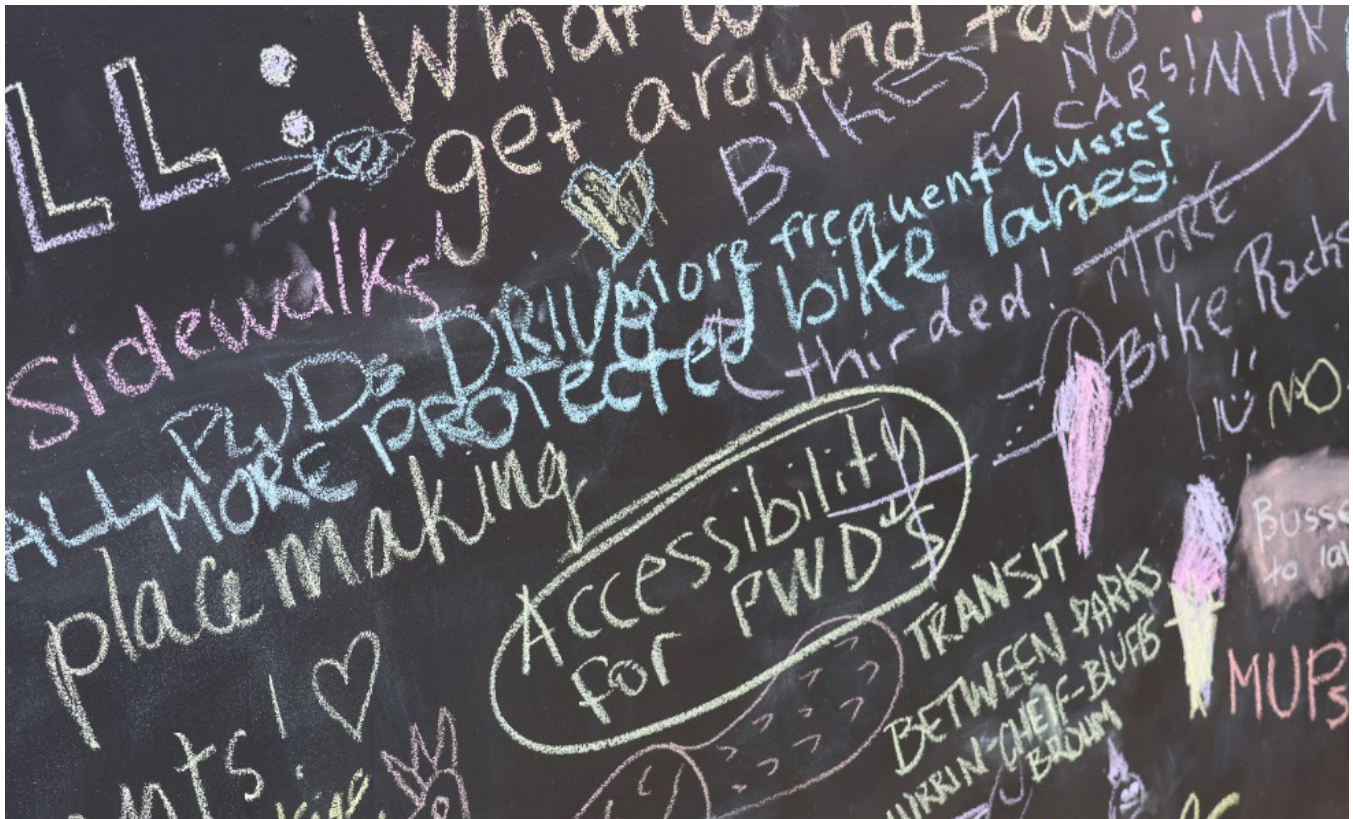 LL:
What w
get around
BIKES
NO
CARS!
MOR
Sidewalks!
more frequent busses
ALL PWDs DRIVE
MORE PROTECTED bike lanes!
thirded!
MORE
Bike Racks
NO
placemaking
Accessibility
For PWD's
TRANSIT
BETWEEN PARKS
CHEIF-BLUFFS
BROWM
Busse
to
MUPs